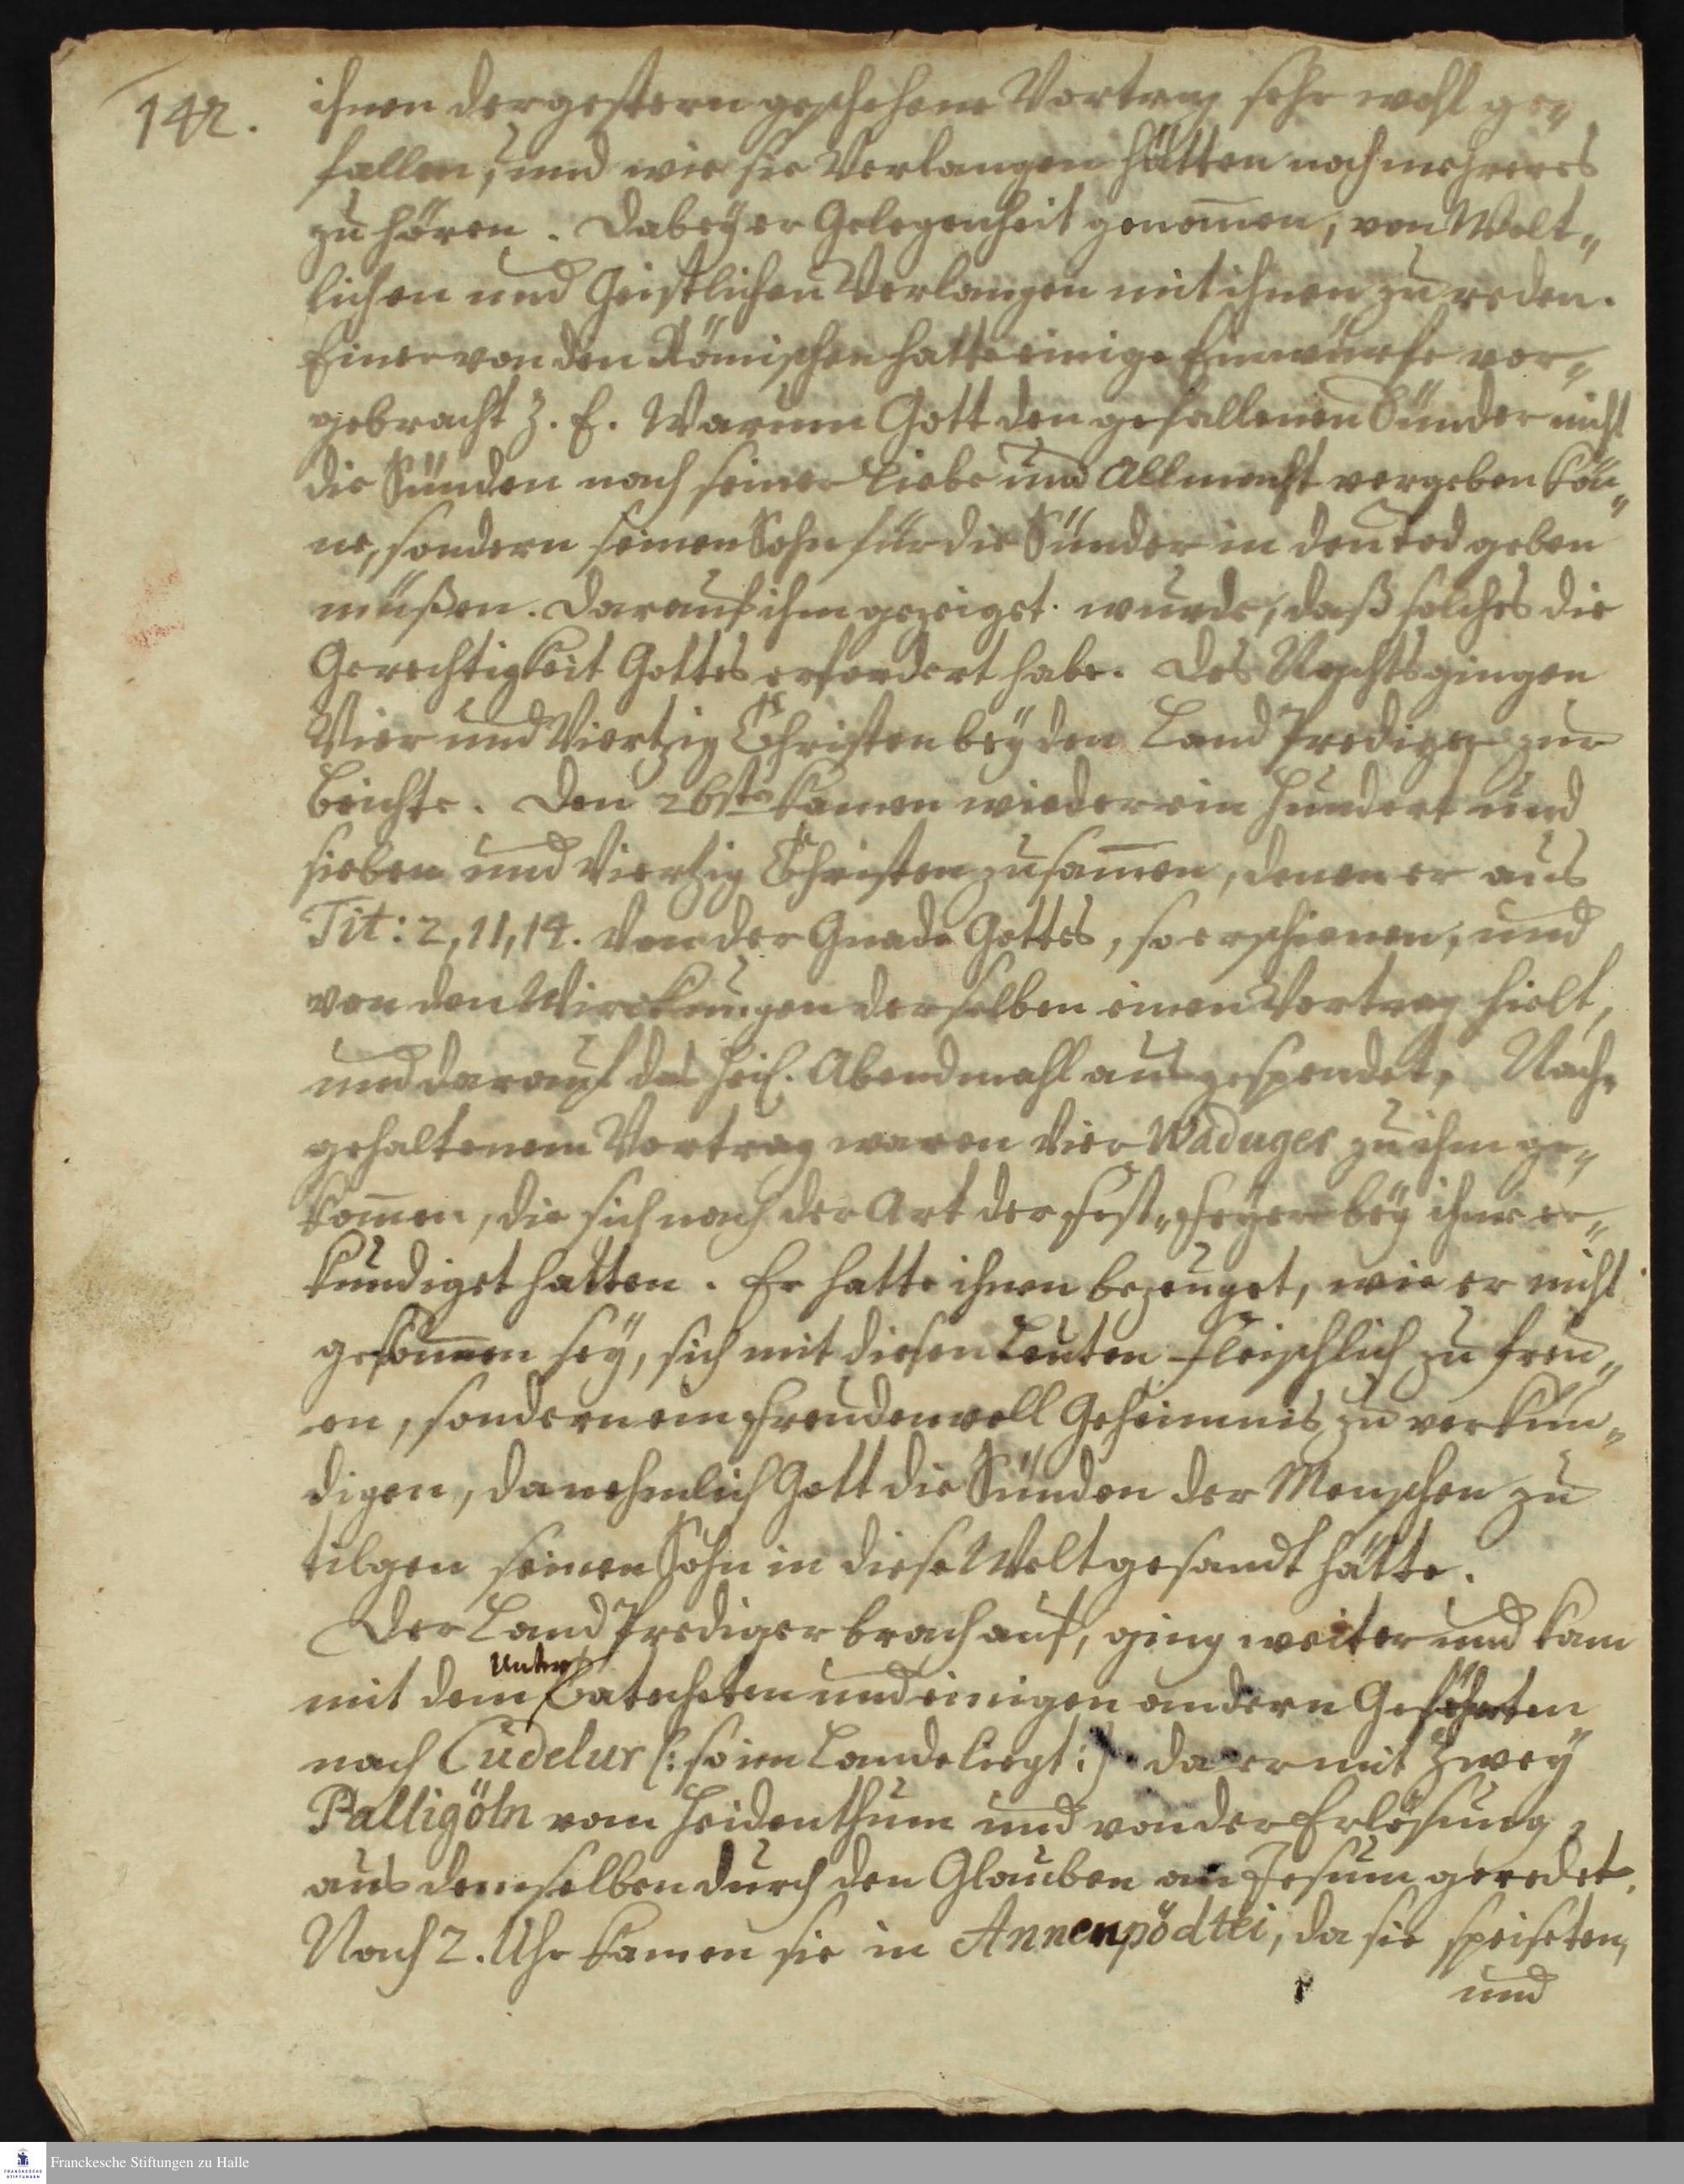 142.
ihnen der gestern geschehene Vortrag sehr wohl ge„
fallen, und wie sie Verlangen hätten noch mehreres
zu hören. Dabey er Gelegenheit genom̄en, von Welt„
lichen und Geistlichen Verlangen mit ihnen zu reden.
Einer von den Römischen hatte einige Einwürfe vor„
gebracht z. E. Warum Gott den gefallenen Sünder nicht
die Sünden nach seiner Liebe und Allmacht vergeben kön„
ne, sondern seinen Sohn für die Sünder in den Tod geben
müßen. Darauf ihm gezeiget wurde, daß solches die
Gerechtigkeit Gottes erfordert habe. Des Nachts gingen
Vier und Viertzig Christen bey den Land Prediger zur
Beichte. Den 26sten kamen wieder ein hundert und
sieben und Viertzig Christen zusam̄en, denen er aus
Tit: 2, 11, 14. Von der Gnade Gottes, so erschienen, und
von den Wirckungen derselben einen Vortrag hielt,
und darauf das heil. Abendmahl ausgespendet. Nach„
gehaltenem Vortrag waren vier Waduger zu ihm ge„
kom̄en, die sich nach der Art der Fest„Feyer bey ihm er„
kundiget hatten. Er hatte ihnen bezeuget, wie er nicht
gesonnen sey, sich mit diesen Leuten fleischlich zu freu„
en, sondern ein freudenvoll Geheimnis zu verkün„
digen, da nehmlich Gott die Sünden der Menschen zu
tilgen seinen Sohn in diese Welt gesandt hätte.
Der Land Prediger brach auf, ging weiter und kam
Unter
mit dem Catecheten und einigen andern Gefährten
nach Cudelur (: so im Lande liegt :) da er mit zwey
Palligöln vom Heidenthum und von der Erlösung
aus demselben durch den Glauben an Jesum geredet.
Nach 2. Uhr kamen sie in Annenpödtei, da sie speiseten,
und
FRANCKESCHE
STIFTUNGEN
Franckesche Stiftungen zu Halle